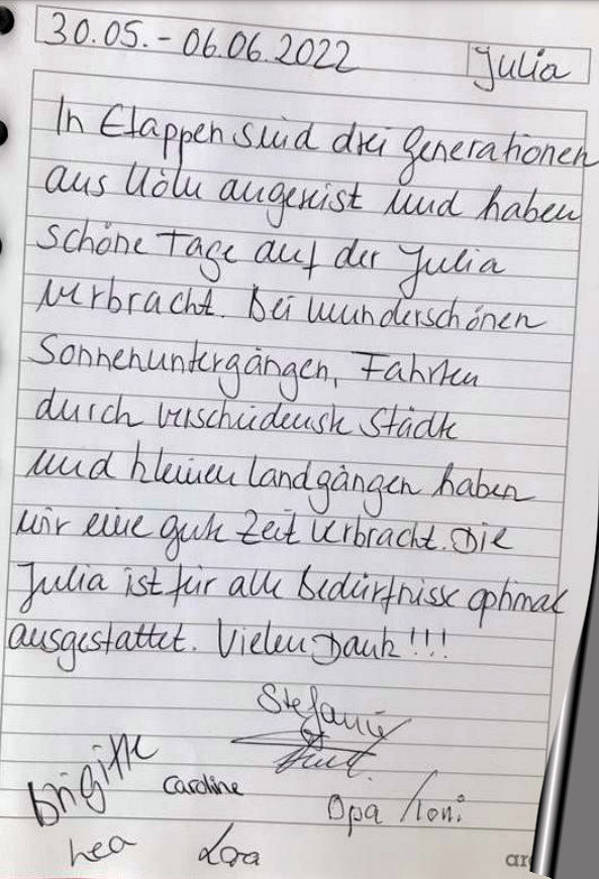 30.05.-06.06.2022 Julia
In Etappen sind drei Generationen
aus Köln angereist und haben
schöne Tage auf der Julia
verbracht. Bei wunderschönen
Sonnenuntergängen, Fahrten
durch verschiedenste Städte
und kleinen Landgängen haben
wir eine gute Zeit verbracht. Die
Julia ist für alle Bedürfnisse optimal
ausgestattet. Vielen Dank!!!
Stefanie
Brigitte Caroline Opa Toni
Lea